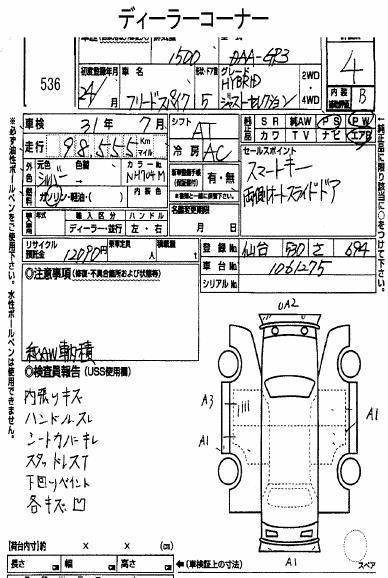 ディーラーコーナー
1500 DAA-GP3
536
初度登録年月 車名 形状・ドア数 グレード 2WD・4WD
24/ フリードスパイク 5 HYBRID ジャストセレクション
4
内装 B
車検 31年 7月 シフト AT
純正品 SR 純AW PS PW
カワ TV ナビ エアB
走行 98,555 Km マイル 冷房 AC
外色 元色 色替 カラーNo.
シルバー NH704M 内装色
燃料 ガソリン・軽油・( )
有・無
セールスポイント
スマートキー
両側オートスライドドア
名義変更期限 月 日
年式 輸入区分 ハンドル
ディーラー・並行 左・右
リサイクル預託金 12090円 乗車定員 人 積載量
登録No. 仙台 530 さ 694
車台No. 1061275
シリアルNo.
◎注意事項(修復・不具合箇所および状態等)
純AW 軸積
◎検査員報告(USS使用欄)
内張りキズ
ハンドルスレ
シートカバーキレ
スタッドレスT
下回りペイント
各キズ凹
UA2
A3
A1
A1
A1
スペア
【荷台内寸】約 × × (cm)
長さ cm 幅 cm 高さ cm ←(車検証上の寸法)
※必ず油性ボールペンをご使用下さい。水性ボールペンは使用できません。